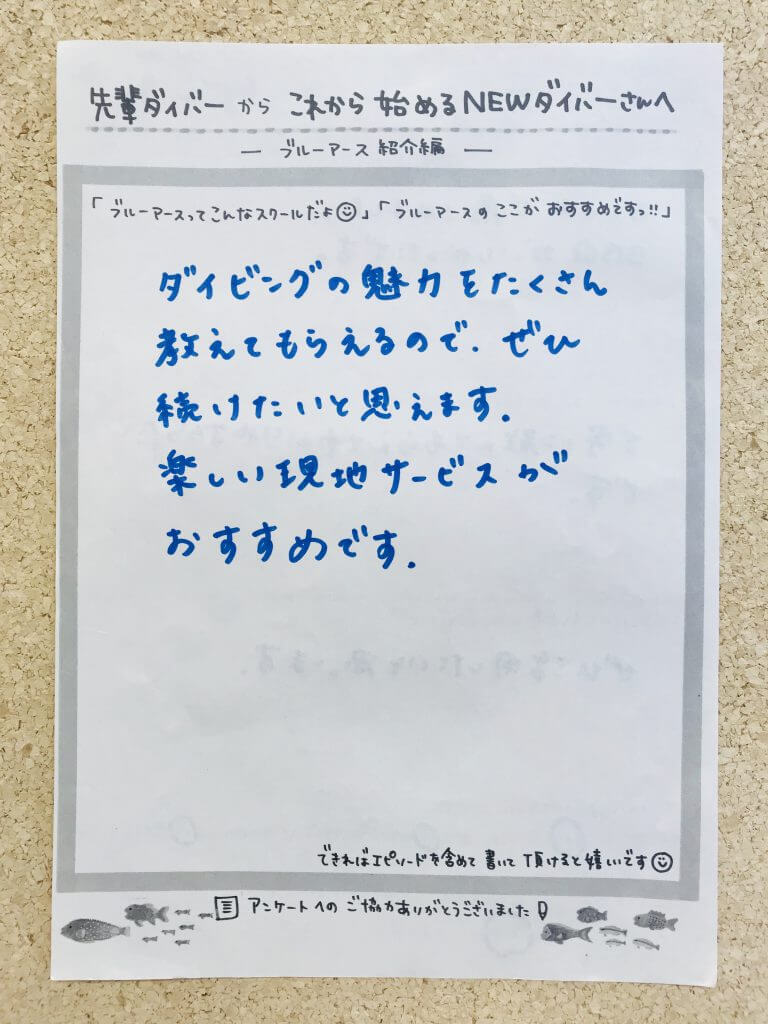 先輩ダイバーから これから始めるNEWダイバーさんへ
― ブルーアース 紹介編 ―
「ブルーアースってこんなスクールだよ☺」「ブルーアースの ここが おすすめですっ!!」
ダイビングの魅力をたくさん
教えてもらえるので、ぜひ
続けたいと思えます。
楽しい現地サービスが
おすすめです。
できればエピソードを含めて書いて頂けると嬉しいです☺
アンケートへの ご協力ありがとうございました